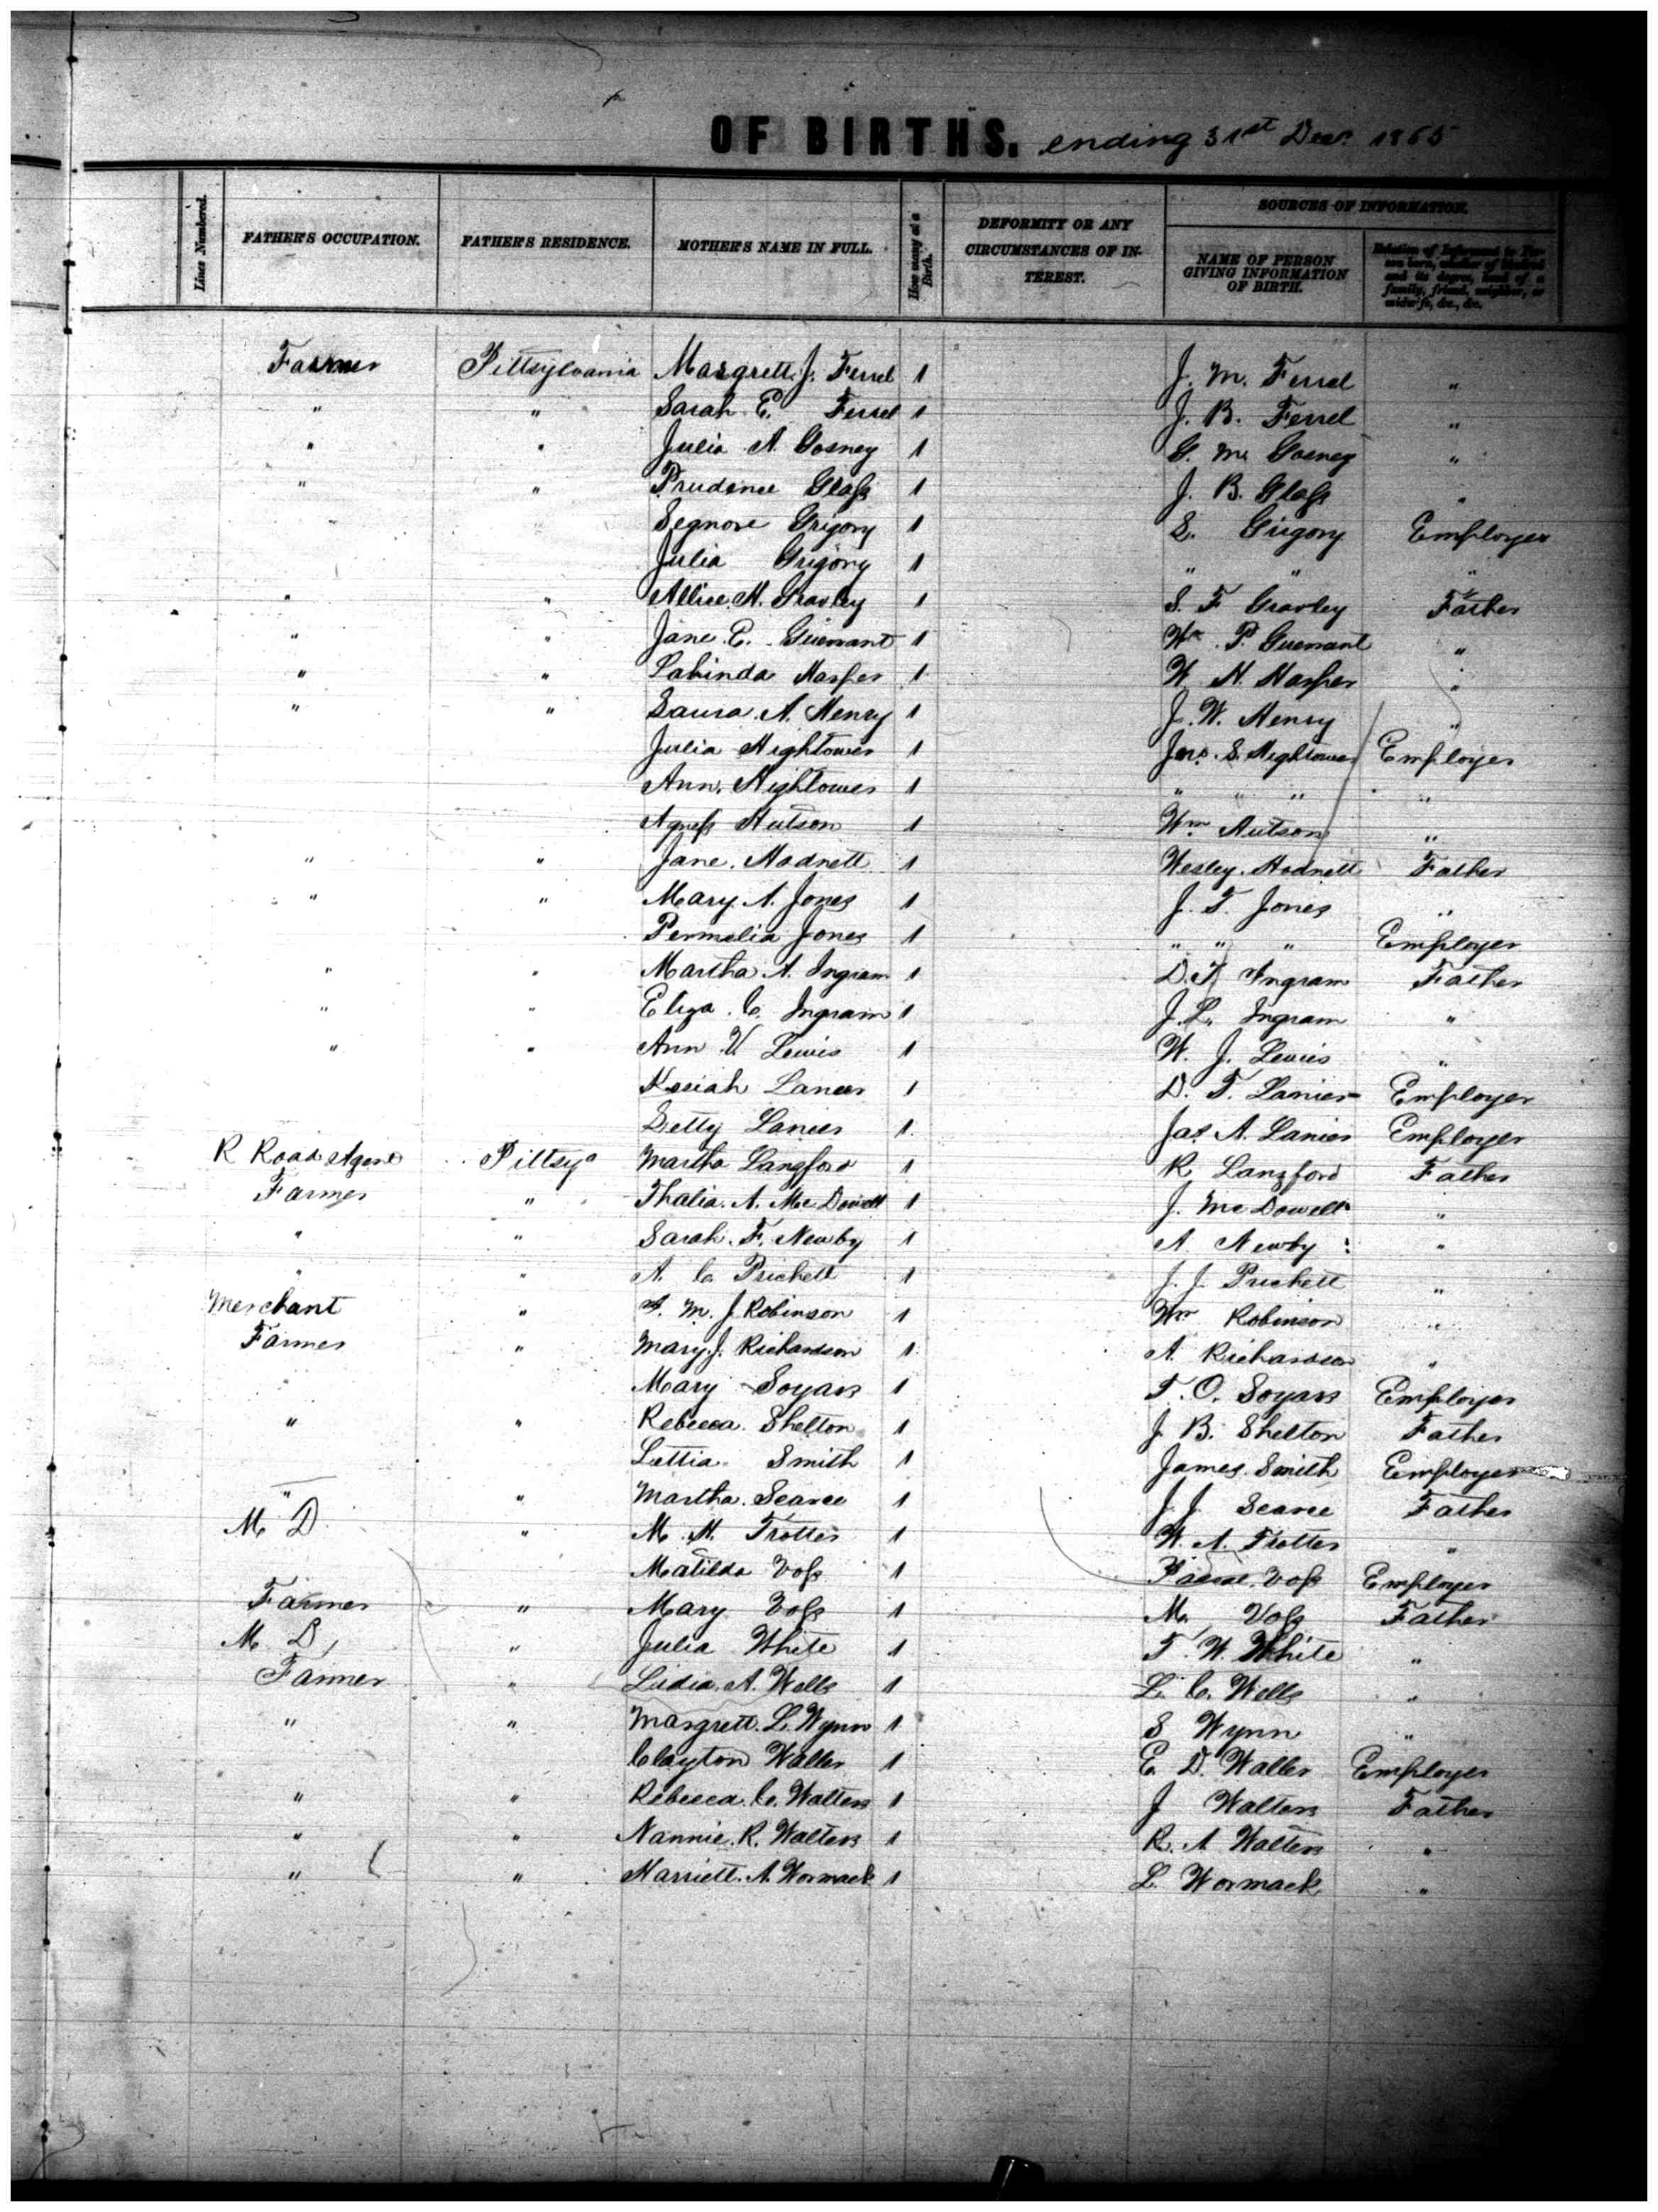 OF BIRTHS. ending 31st Decr. 1865
SOURCES OF INFORMATION.
Lines Numbered. FATHER'S OCCUPATION. FATHER'S RESIDENCE. MOTHER'S NAME IN FULL. How many at a Birth. DEFORMITY OR ANY CIRCUMSTANCES OF INTEREST. NAME OF PERSON GIVING INFORMATION OF BIRTH. Relation of Informant to Person born, whether of kindred and its degree, head of a family, friend, neighbor, or midwife, &c., &c.
Farmer Pittsylvania Margrett J. Ferrel 1 J. M. Ferrel "
" " Sarah E. Ferrel 1 J. B. Ferrel "
" " Julia A. Gosney 1 G. M. Gosney "
" " Prudence Glass 1 J. B. Glass "
Segnore Grigory 1 Grigory Employer
Julia Grigory 1 " " "
" " Allice H. Gravley 1 S. F. Gravley Father
" " Jane E. Guerrant 1 Wm. P. Guerrant "
" " Labinda Harper 1 W. H. Harper "
" " Laura A. Henry 1 J. W. Henry "
Julia Hightower 1 Jno. S. Hightower Employer
Ann Hightower 1 " " " "
Agness Hutson 1 Wm Hutson "
" " Jane Hodnett 1 Wesley Hodnett Father
" " Mary A. Jones 1 J. T. Jones "
Permelia Jones 1 " " " Employer
" " Martha A. Ingram 1 D. T. Ingram Father
" " Eliza C. Ingram 1 J. L. Ingram "
" " Ann V. Lewis 1 W. J. Lewis "
Kesiah Lanier 1 D. T. Lanier Employer
Betty Lanier 1 Jas A. Lanier Employer
R Road Agent Pittsya Martha Langford 1 R Langford Father
Farmer " Thalia A. McDowell 1 J. McDowell "
" " Sarah F. Newby 1 A Newby "
" " A. C. Prichett 1 J. J. Prichett "
Merchant " M. J. Robinson 1 Wm Robinson "
Farmer " Mary J. Richardson 1 A. Richardson "
Mary Soyars 1 T. O. Soyars Employer
" " Rebecca Shelton 1 J. B. Shelton Father
Lettia Smith 1 James Smith Employer
" " Martha Searce 1 J. J. Searce Father
M D " M. H. Trotter 1 W. A. Trotter "
Matilda Voss 1 Voss Employer
Farmer " Mary Voss 1 M. Voss Father
M D, " Julia White 1 T. W. White "
Farmer " Lidia A. Wells 1 L. C. Wells "
" " Margrett L. Wynn 1 S Wynn "
Clayton Waller 1 E. D. Waller Employer
" " Rebecca C. Walters 1 J Walters Father
" " Nannie R. Walters 1 R. A Walters "
" " Harriett A. Wormack 1 L. Wormack "